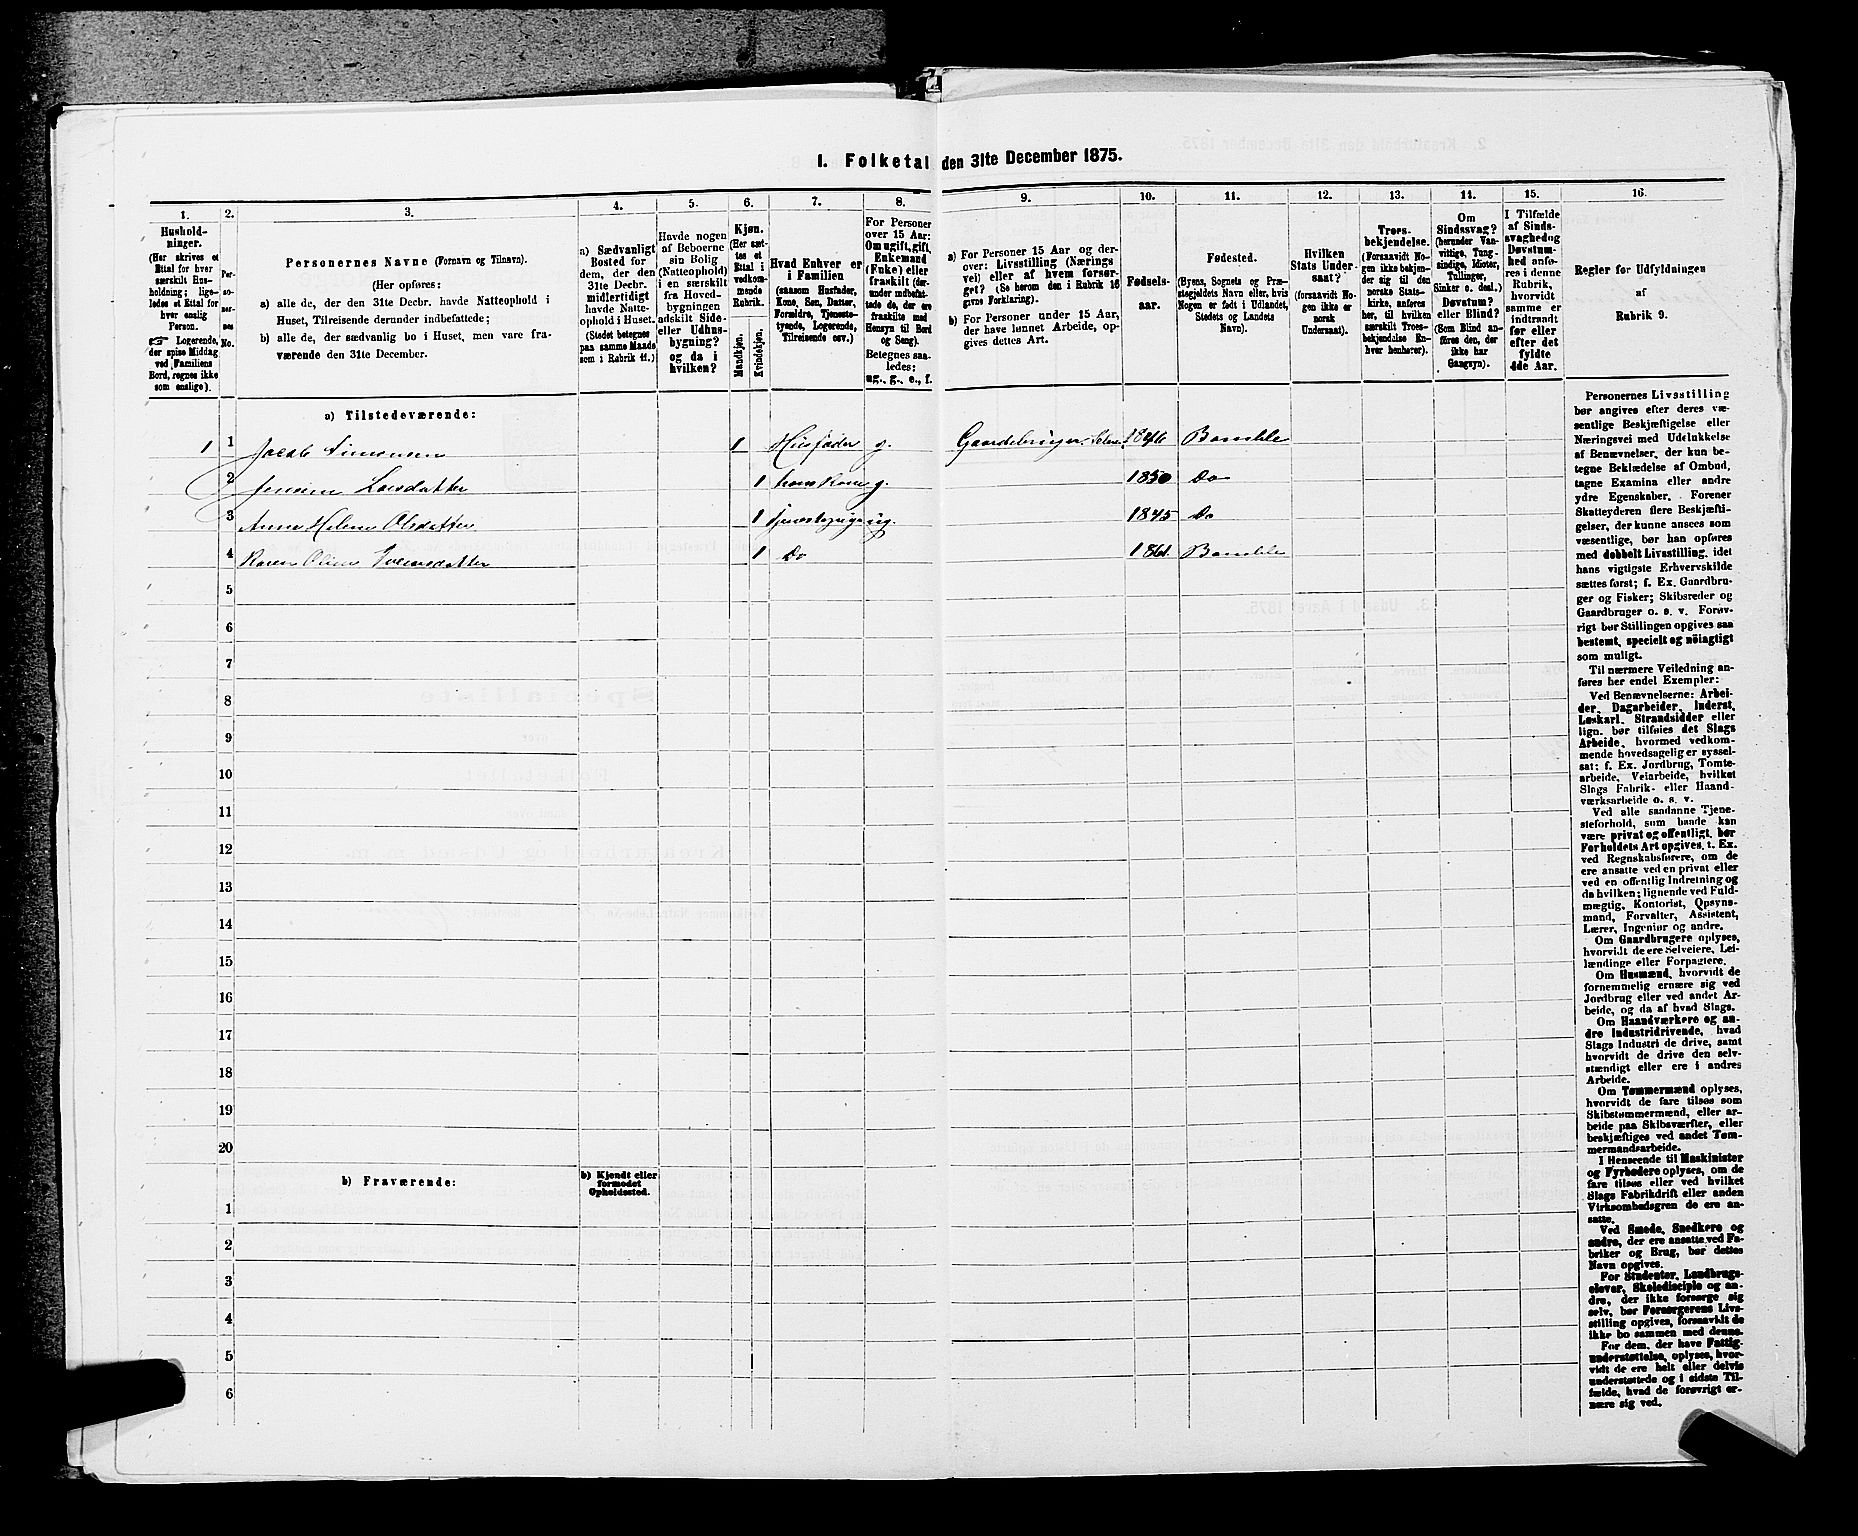 1. Folketal den 31te December 1875.
1.
Hushold-
ninger.
(Her skrives et
Ettal for hver
særskilt Hus-
holdning; lige-
ledes et Ettal for
hver enslig
Person.
☞ Logerende,
der spise Middag
ved Familiens
Bord, regnes ikke
som enslige).
2.
Per-
so-
ner-
nes
No.
3.
Personernes Navne (Fornavn og Tilnavn).
(Her opføres:
a) alle de, der den 31te Decbr. havde Natteophold i
Huset, Tilreisende derunder indbefattede;
b) alle de, der sædvanlig bo i Huset, men vare fra-
værende den 31te December.
4.
a) Sædvanligt
Bosted for
dem, der den
31te Decbr.
midlertidigt
havde Natte-
ophold i Huset.
(Stedet betegnes
paa samme Maade
som i Rubrik 11.)
5.
Havde nogen
af Beboerne
sin Bolig
(Natteophold)
i en særskilt
fra Hoved-
bygningen
adskilt Side-
eller Udhus-
bygning?
og da i
hvilken?
6.
Kjøn.
(Her sæt-
tes et
Ettal i
vedkom-
mende
Rubrik.
Mandkjøn.
Kvindekjøn.
7.
Hvad Enhver er
i Familien
(saasom Husfader,
Kone, Søn, Datter,
Forældre, Tjeneste-
tyende, Logerende,
Tilreisende osv.)
8.
For Personer
over 15 Aar:
Om ugift, gift,
Enkemand
(Enke) eller
fraskilt (der-
under indbefat-
tede de, der ere
fraskilte med
Hensyn til Bord
og Seng).
Betegnes saa-
ledes:
ug., g., e., f.
9.
a) For Personer 15 Aar og der-
over: Livsstilling (Nærings-
vei) eller af hvem forsør-
get? (Se herom den i Rubrik 16
givne Forklaring).
b) For Personer under 15 Aar,
der have lønnet Arbeide, op-
gives dettes Art.
10.
Fødsels-
aar.
11.
Fødested.
(Byens, Sognets og Præ-
stegjeldets Navn eller, hvis
Nogen er født i Udlandet,
Stedets og Landets
Navn).
12.
Hvilken
Stats Under-
saat?
(forsaavidt No-
gen ikke er
norsk
Undersaat).
13.
Troes-
bekjendelse.
(Forsaavidt No-
gen ikke bekjen-
der sig til den
norske Stats-
kirke, anføres
her, til hvilken
særskilt Troes-
bekjendelse En-
hver henhører).
14.
Om
Sindssvag?
(herunder Van-
vittige, Tung-
sindige, Idioter,
Tullinger,
Sinker o. desl.)
Døvstum?
eller Blind?
(Som Blind an-
føres den, der
ikke har
Gangsyn).
15.
I Tilfælde
af Sinds-
svaghed og
Døvstum-
hed anfø-
res i denne
Rubrik,
hvorvidt
samme er
indtraadt
før eller
efter det
fyldte
4de Aar.
16.
Regler for Udfyldningen
af
Rubrik 9.
a) Tilstedeværende:
1 1 Jacob Simonsen 1 Husfader g. Gaardebruger 1846 Bamble
2 Larsdatter 1 hans Kone g. 1850 Do
3 Anne Helene Olsdatter 1 ug. 1845 Do
4 Karen 1 Do 1861 Bamble
5
6
7
8
9
10
11
12
13
14
15
16
17
18
19
20
b) Fraværende:
b) Kjendt eller
formodet
Opholdssted.
1
2
3
4
5
6
Personernes Livsstilling
bør angives efter deres væ-
sentlige Beskjæftigelse eller
Næringsvei med Udelukkelse
af Benævnelser, der kun be-
tegne Beklædelse af Ombud,
tagne Examina eller andre
ydre Egenskaber. Forener
Skatteyderen flere Beskjæfti-
gelser, der kunne ansees som
væsentlige, bør han opføres
med dobbelt Livsstilling, idet
hans vigtigste Erhvervskilde
sættes først; f. Ex. Gaardbru-
ger og Fisker; Skibsreder og
Gaardbruger o. s. v. Forøv-
rigt bør Stillingen opgives saa
bestemt, specielt og nöiagtigt
som muligt.
Til nærmere Veiledning an-
føres her endel Exempler:
Ved Benævnelserne: Arbei-
der, Dagarbeider, Inderst,
Løskarl, Strandsidder eller
lign. bør tilføies det Slags
Arbeide, hvormed vedkom-
mende hovedsagelig er syssel-
sat; f. Ex. Jordbrug, Tomte-
arbeide, Veiarbeide, hvilket
Slags Fabrik- eller Haand-
værksarbeide o. s. v.
Ved alle saadanne Tjene-
steforhold, som baade kan
være privat og offentligt, bør
Forholdets Art opgives, t. Ex.
ved Regnskabsførere, om de
ere ansatte ved en privat eller
ved en offentlig Indretning og
da hvilken; lignende ved Fuld-
mægtig, Kontorist, Opsyns-
mand, Forvalter, Assistent,
Lærer, Ingeniør og andre.
Om Gaardbrugere oplyses,
hvorvidt de ere Selveiere, Lei-
lændinge eller Forpagtere.
Om Husmænd, hvorvidt de
fornemmelig ernære sig ved
Jordbrug eller ved andet Ar-
beide, og da af hvad Slags.
Om Haandværkere og an-
dre Industridrivende, hvad
Slags Industri de drive, samt
hvorvidt de drive den selv-
stændigt eller ere i andres
Arbeide.
Om Tømmermænd oplyses,
hvorvidt de fare tilsøs som
Skibstømmermænd, eller ar-
beide paa Skibsværfter, eller
beskjæftiges ved andet Tøm-
mermandsarbeide.
I Henseende til Maskinister
og Fyrbødere oplyses, om de
fare tilsøs eller ved hvilket
Slags Fabrikdrift eller anden
Virksomhedsgren de ere an-
satte.
Ved Smede, Snedkere og
andre, der ere ansatte ved Fa-
briker og Brug, bør dettes
Navn opgives.
For Studenter, Landbrugs-
elever, Skoledisciple og an-
dre, der ikke forsørge sig
selv, bør Forsørgerens Livs-
stilling opgives, forsaavidt de
ikke bo sammen med denne.
For dem, der have Fattig-
understøttelse, oplyses, hvor-
vidt de ere helt eller delvis
understøttede og i sidste Til-
fælde, hvad de forøvrigt er-
nære sig ved.